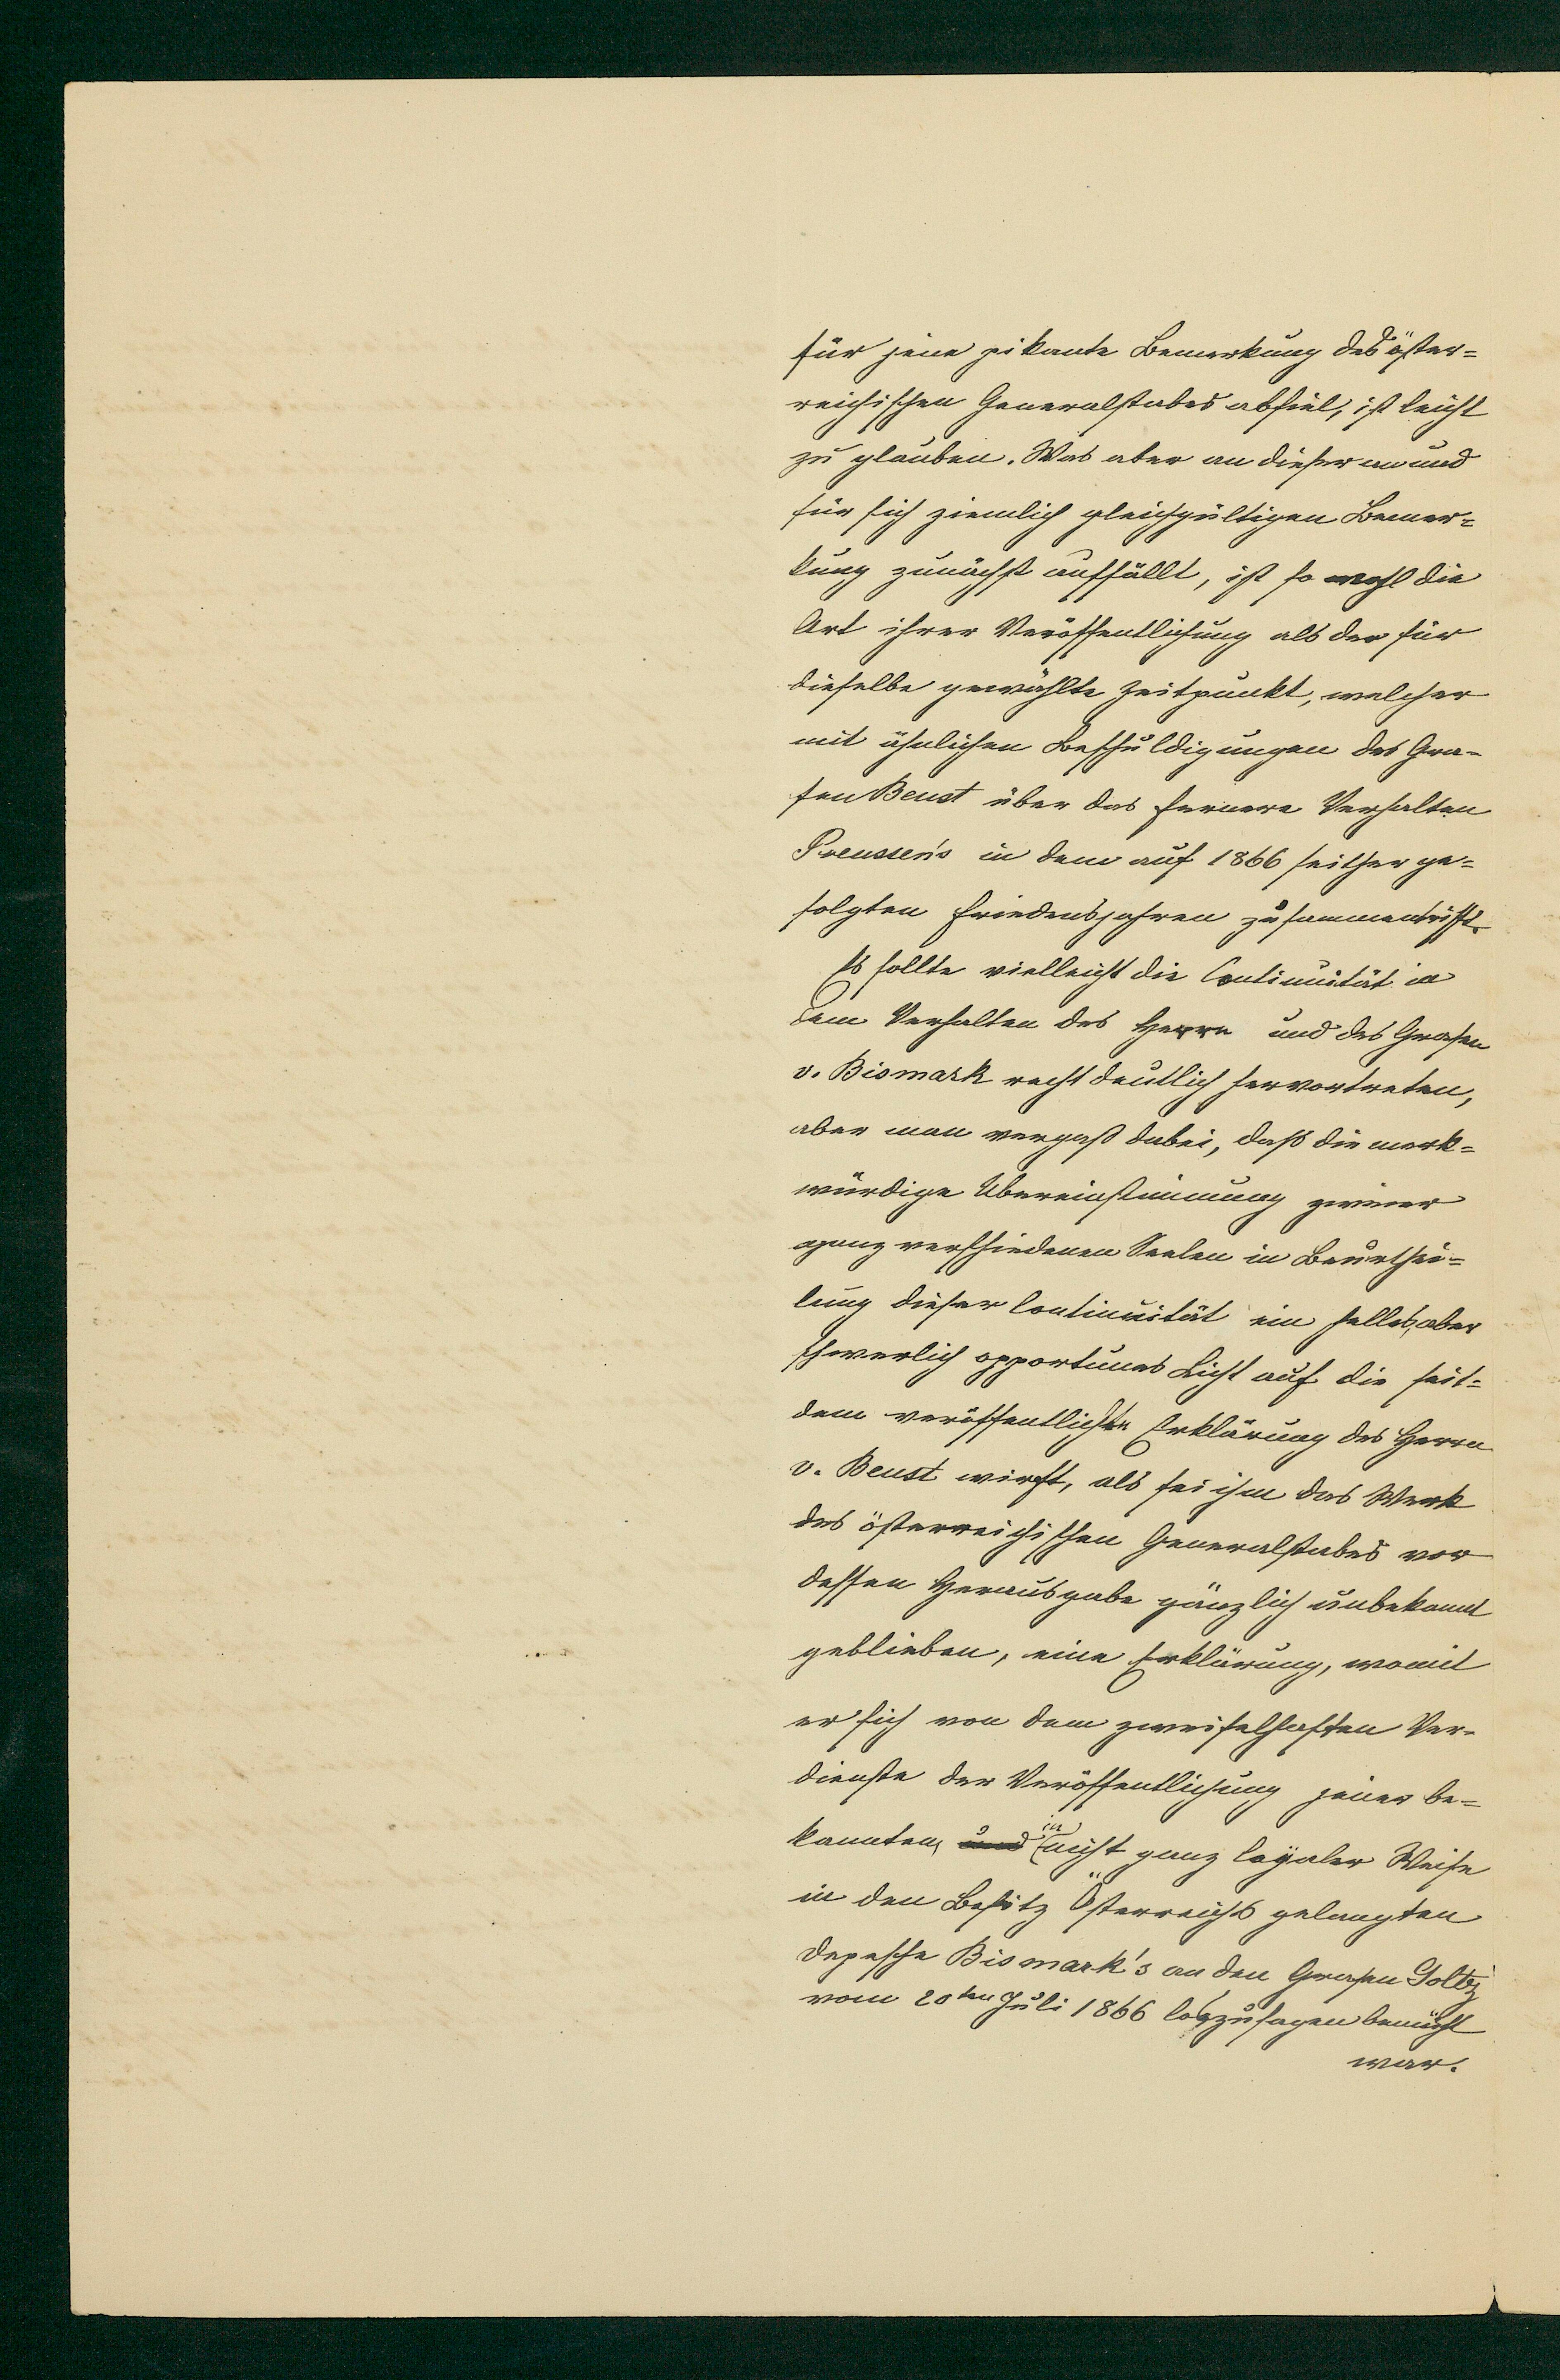 für jene pikante Bemerkung des öster=
reichischen Generalstabes abfiel, ist leicht
zu glauben. Was aber an dieser an und
für sich ziemlich gleichgültigen Bemer=
kung zunächst auffällt, ist so wohl die
Art ihrer Veröffentlichung als der für
dieselbe gewählte Zeitpunkt, welcher
mit ähnlichen Beschuldigungen des Gra=
fen Beust über das fernere Verhalten
Preussen's in dem auf 1866 seither ge=
folgten Friedensjahren zusammentrifft.
Es sollte vielleicht die Continuität in
dem Verhalten des Herrn und des Grafen
v. Bismark recht deutlich hervortreten,
aber man vergaß dabei, daß die merk=
würdige Übereinstimmung zweier
ganz verschiedenen Seelen in Beurthei=
lung dieser Continuität ein helles, aber
schwerlich opportunes Licht auf die seit=
dem veröffentlichte Erklärung des Herrn
v. Beust wirft, als sei ihm das Werk
des österreichischen Generalstabes vor
dessen Herausgabe gänzlich unbekannt
geblieben, eine Erklärung, womit
er sich von dem zweifelhaften Ver=
dienste der Veröffentlichung jener be=
kannten, und in nicht ganz loyaler Weise
in den Besitz Österreichs gelangten
Depesche Bismark's an den Grafen Goltz
vom 20ten Juli 1866 loszusagen bemüht
war.